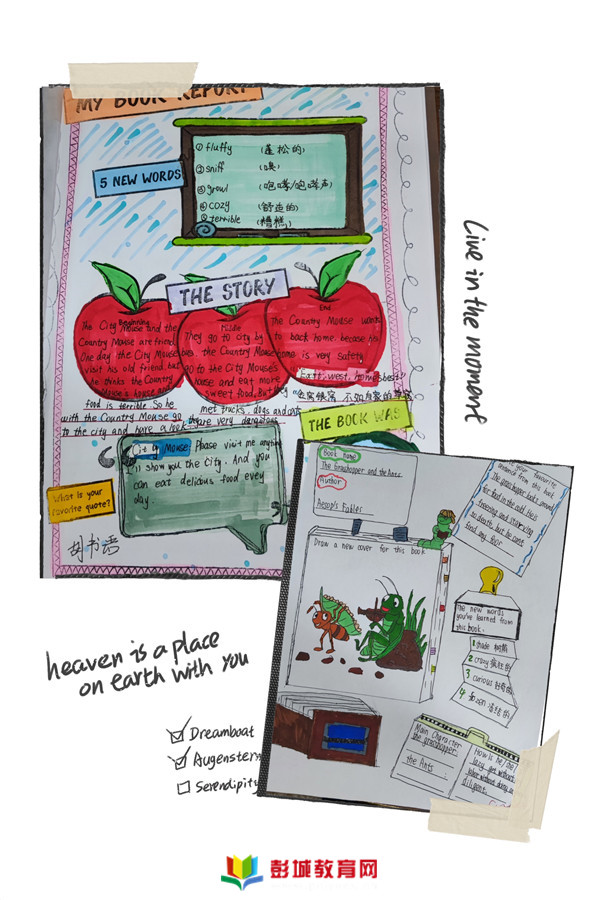 MY BOOK REPORT
5 NEW WORDS
①fluffy (蓬松的)
②sniff (嗅)
③growl (咆哮/咆哮声)
④cozy (舒适的)
⑤terrible (糟糕)
THE STORY
Beginning
The City Mouse and the
Country Mouse are friend
One day the City Mouse
visit his old friend, but
he thinks the Country
Mouse's house and
food is terrible. So he
with the Country Mouse go
to the city and have a look.
Middle
They go to city by
bus. the Country Mouse
go to the City Mouse's
house and eat more
sweet food, But they
met trucks, dogs and cats
there very dangerous
End
The Country Mouse want
to back home. because his
home is very safety.
East, west, home's best
THE BOOK WAS
What is your
favorite quote?
City Mouse: Please visit me anytime
I'll show you the City. And you
can eat delicous food every
day.
胡书语
Live in the moment
Book name
The Grasshopper and the Ants
Author
Aesop's Fables
your favourite
sentence from this book
The grasshopper looks around
for food in the cold. He's
freezing and starving
to death, but he cant
food any thor
Draw a new cover for this book
The new words
you've learned from
this book.
1 shade 树荫
2 crazy 疯狂的
3 curious 好奇的
4 frozen 冻结的
Main Character
the grasshopper
the Ants
How is he/she
lazy
diligent
heaven is a place
on earth with you
Dreamboat
Augenstern
Serendipity
彭城教育网